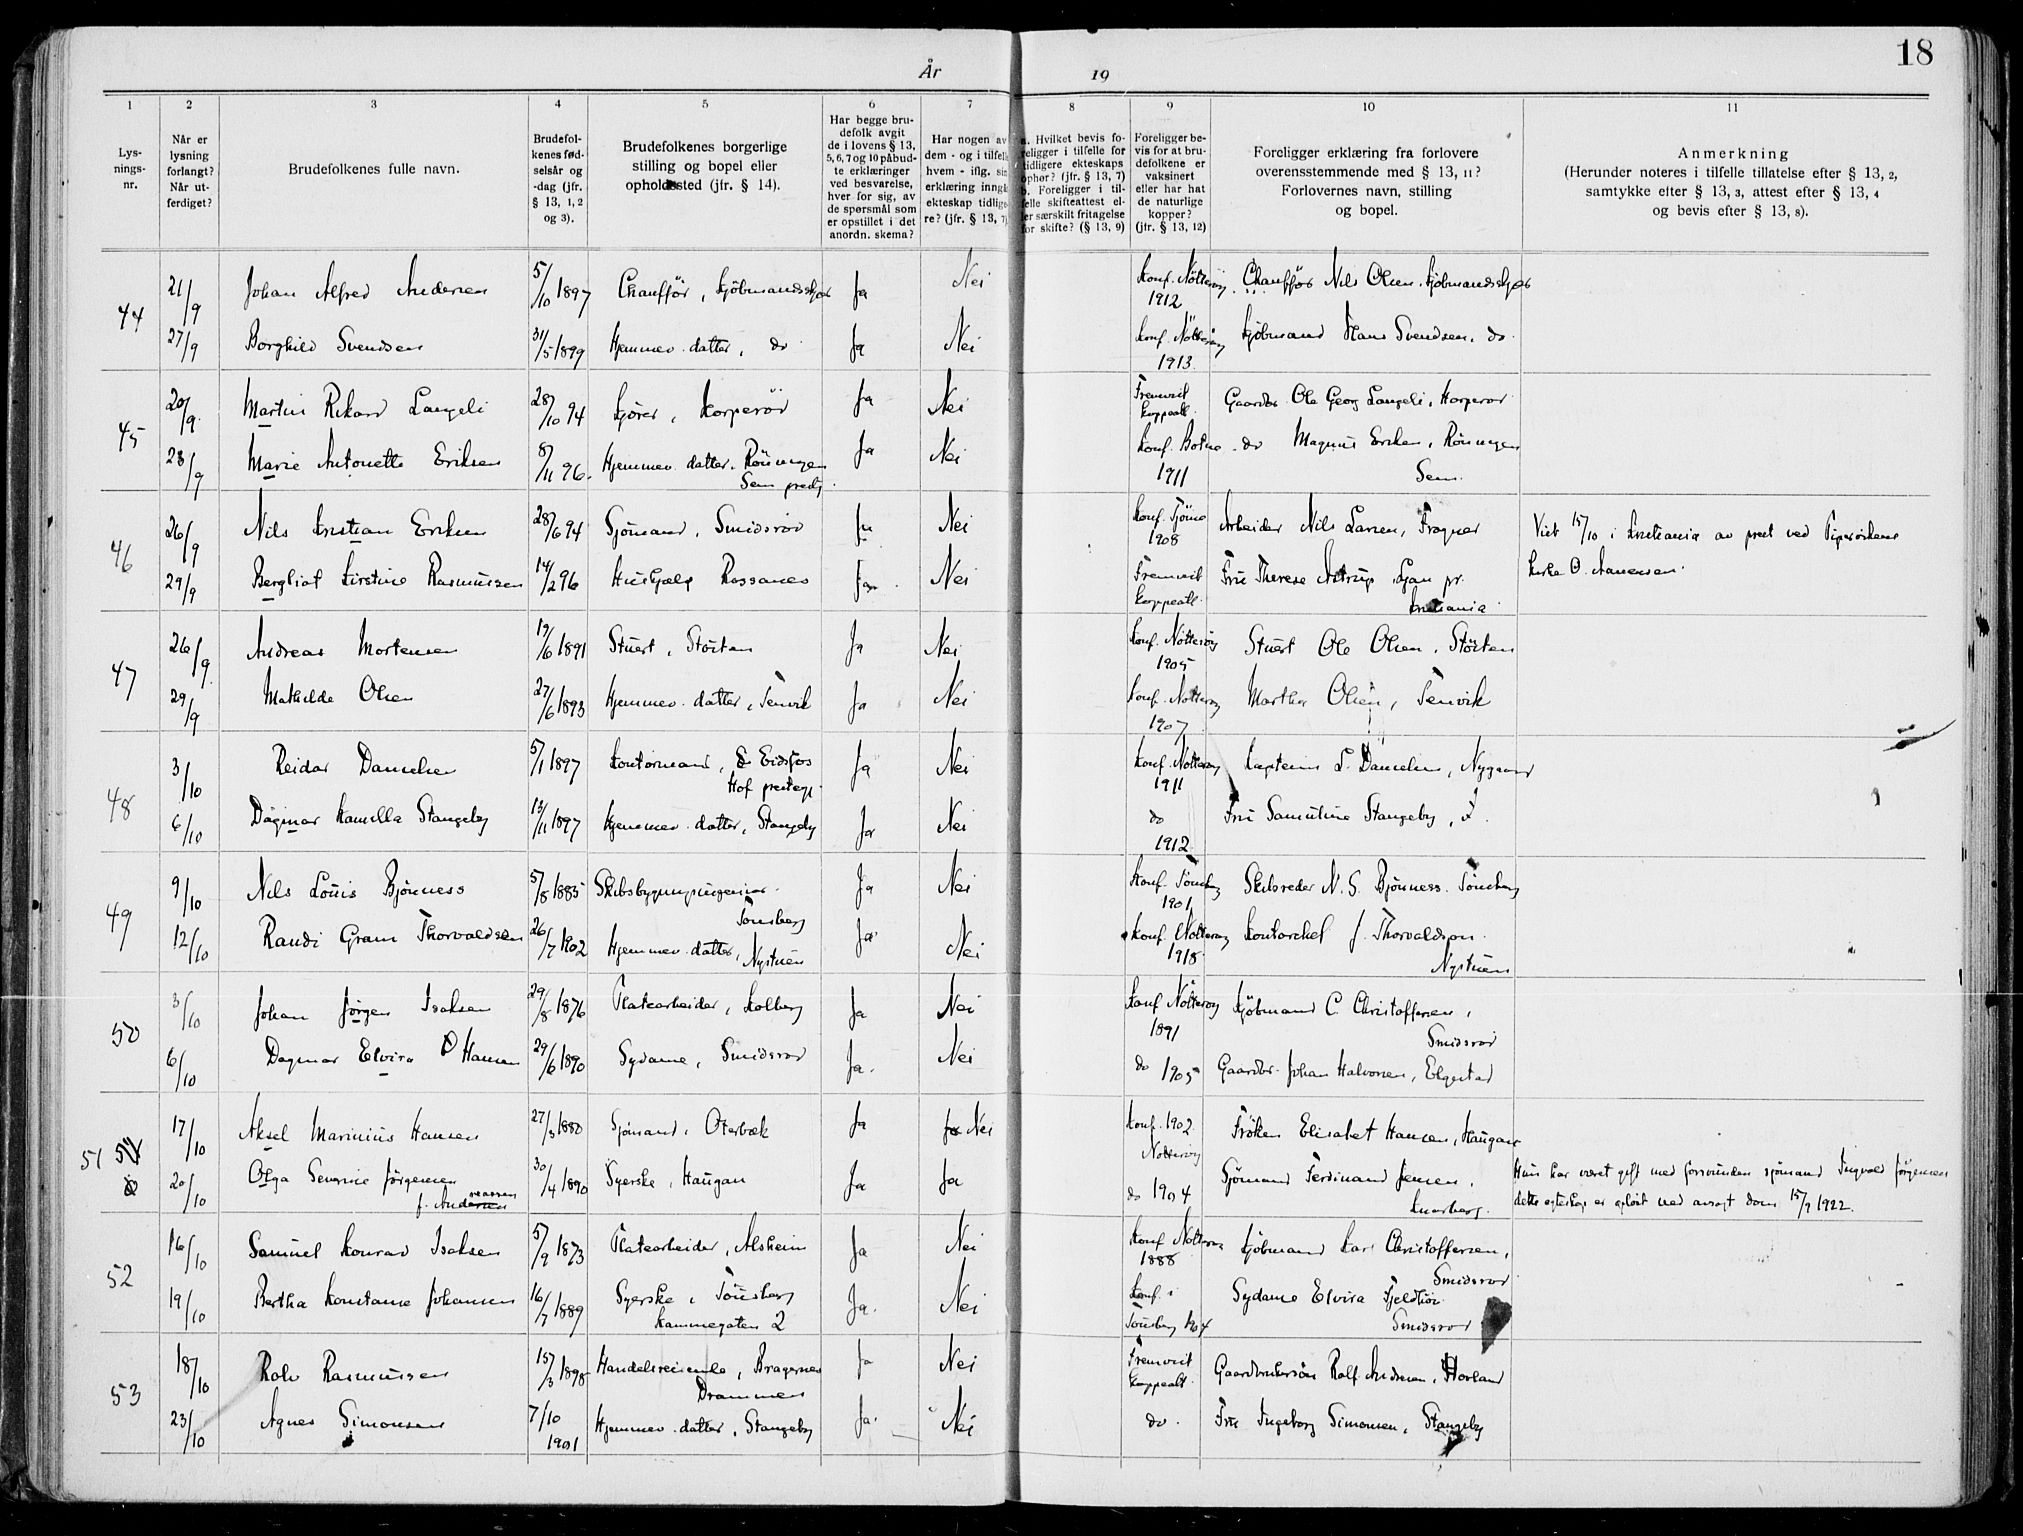 18
År 19
1 2 3 4 5 6 7 8 9 10 11
Lys-
nings-
nr.
Når er
lysning
forlangt?
Når ut-
ferdiget?
Brudefolkenes fulle navn.
Brudefol-
kenes fød-
selsår og
-dag (jfr.
§ 13, 1, 2
og 3).
Brudefolkenes borgerlige
stilling og bopel eller
opholdssted (jfr. § 14).
Har begge bru-
defolk avgit
de i lovens § 13,
5, 6, 7 og 10 påbud-
te erklæringer
ved besvarelse,
hver for sig, av
de spørsmål som
er opstillet i det
anordn. skema?
Har nogen av
dem - og i tilfelle
hvem - iflg. sin
erklæring inngk
ekteskap tidlige-
re? (jfr. § 13, 7)
a. Hvilket bevis fo-
religger i tilfelle for
tidligere ekteskaps
ophør? (jfr. § 13, 7)
b. Foreligger i til-
felle skifteattest el-
ler særskilt fritagelse
for skifte? (§ 13, 9)
Foreligger be-
vis for at bru-
defolkene er
vaksinert
eller har hat
de naturlige
kopper?
(jfr. § 13, 12)
Foreligger erklæring fra forlovere
overensstemmende med § 13, 11?
Forlovernes navn, stilling
og bopel.
Anmerkning
(Herunder noteres i tilfelle tillatelse efter § 13, 2,
samtykke efter § 13, 3, attest efter § 13, 4
og bevis efter § 13, 8).
44 21/9 Johan Alfred Andersen 5/10 1897 Chaufför, Kjöbmandsskjær Ja Nei Konf. Nötteröy 1912 Chaufför Nils Olsen, Kjöbmandsskjær
27/9 Borghild Svendsen 31/5 1899 Hjemmev. datter, do Ja Nei Konf. Nötteröy 1913 Kjöbmand Hans Svendsen, do
45 20/9 Martin Rikard Langeli 28/10 94 Kjörer, Korperöd Ja Nei Fremvist koppeatt. Gaardbr. Ole Georg Langeli, Korperöd
28/9 Marie Antonette Eriksen 8/11 96. Hjemmev. datter, Röuningen Sem prestg. Ja Nei Konf. Botne 1911 do Magnus Eriksen, Röuningen Sem.
46 26/9 Nils Kristian Eriksen 28/6 94 Sjömand, Smidsröd Ja Nei Konf. Tjömo 1908 Arbeider Nils Larsen, Fragner Viet 15/10 i Kristiania av prest ved Pipervikens
29/9 Bergliot Kirstine Rasmussen 14/2 96 Hushjælp Rossanes Ja Nei Fremvist koppeatt. Fru Therese Astrup, Ljan pr. Kristiania kirke O. Aanensen.
47 26/9 Andreas Mortensen 19/6 1891 Stuert, Stöiten Ja Nei Konf. Nötteröy 1905 Stuert Ole Olsen, Stöiten
29/9 Mathilde Olsen 27/6 1893 Hjemmev. datter, Tenvik Ja Nei Konf. Nötteröy 1907 Martha Olsen, Tenvik
48 3/10 Reidar Danielsen 5/1 1897 Kontormand, Eidsfos Hof prestegj. Ja Nei Konf. Nötteröy 1911 Kaptein L. Danielsen, Nygaard
6/10 Dagmar Kamilla Stangeby 13/11 1897 Hjemmev. datter, Stangeby Ja Nei do 1912 Fru Samuline Stangeby
49 9/10 Nils Louis Bjönness 5/8 1885 Skibsbygningsingeniør Tönsberg Ja Nei Konf. Tönsberg 1901 Skibsreder N. S. Bjönness Tönsberg
12/10 Randi Gram Thorvaldsen 26/7 1902 Hjemmev. datter, Nystuen Ja Nei Konf. Nötteröy 1918 Kontorchef J. Thorvaldsen Nystuen
50 3/10 Johan Jörgen Isaksen 29/8 1876 Platearbeider, Kolberg Ja Nei Konf Nötteröy 1891 Kjöbmand C. Christoffersen, Smidsröd
6/10 Dagmar Elvira Hansen 29/6 1890 Sydame, Smidsröd Ja. Nei do 1905 Gaardbr. Johan Halvorsen, Elgestad
51 17/10 Aksel Marinius Hansen 27/3 1880 Sjömand, Oterbæk Ja Nei Konf. 1902 Nötteröy Fröken Elisabet Hansen, Haugan
20/10 Olga Severine Jörgensen f. Andreassen 30/4 1890 Syerske, Haugan Ja Ja do 1904 Sjömand Ferdinand Jensen, Knarberg. Hun har været gift med forsvunden sjömand Ingvald Jörgensen
dette egteskap er oplöst ved avsagt dom 15/9 1922.
52 16/10 Samuel Konrad Isaksen 5/9 1873 Platearbeider, Alsheim Ja Nei Konf Nötteröy 1888 Kjöbmand Karl Christoffersen, Smidsröd
19/10 Bertha Konstanse Johansen 16/7 1889 Syerske, Tönsberg Kammegaten 2 Ja. Nei Konf. i Tönsberg 1904 Sydame Elvira Fjeldtun Smidsröd
53 18/10 Rolv Rasmussen 15/3 1898 Handelsreisende, Bragernes Drammen Ja Nei Fremvist koppeatt. Gaardbrukersön Rolf Andersen, Hovland
23/10 Agnes Simonsen 7/10 1901 Hjemmev. datter, Stangeby Ja. Nei do. Fru Ingeborg Simonsen, Stangeby